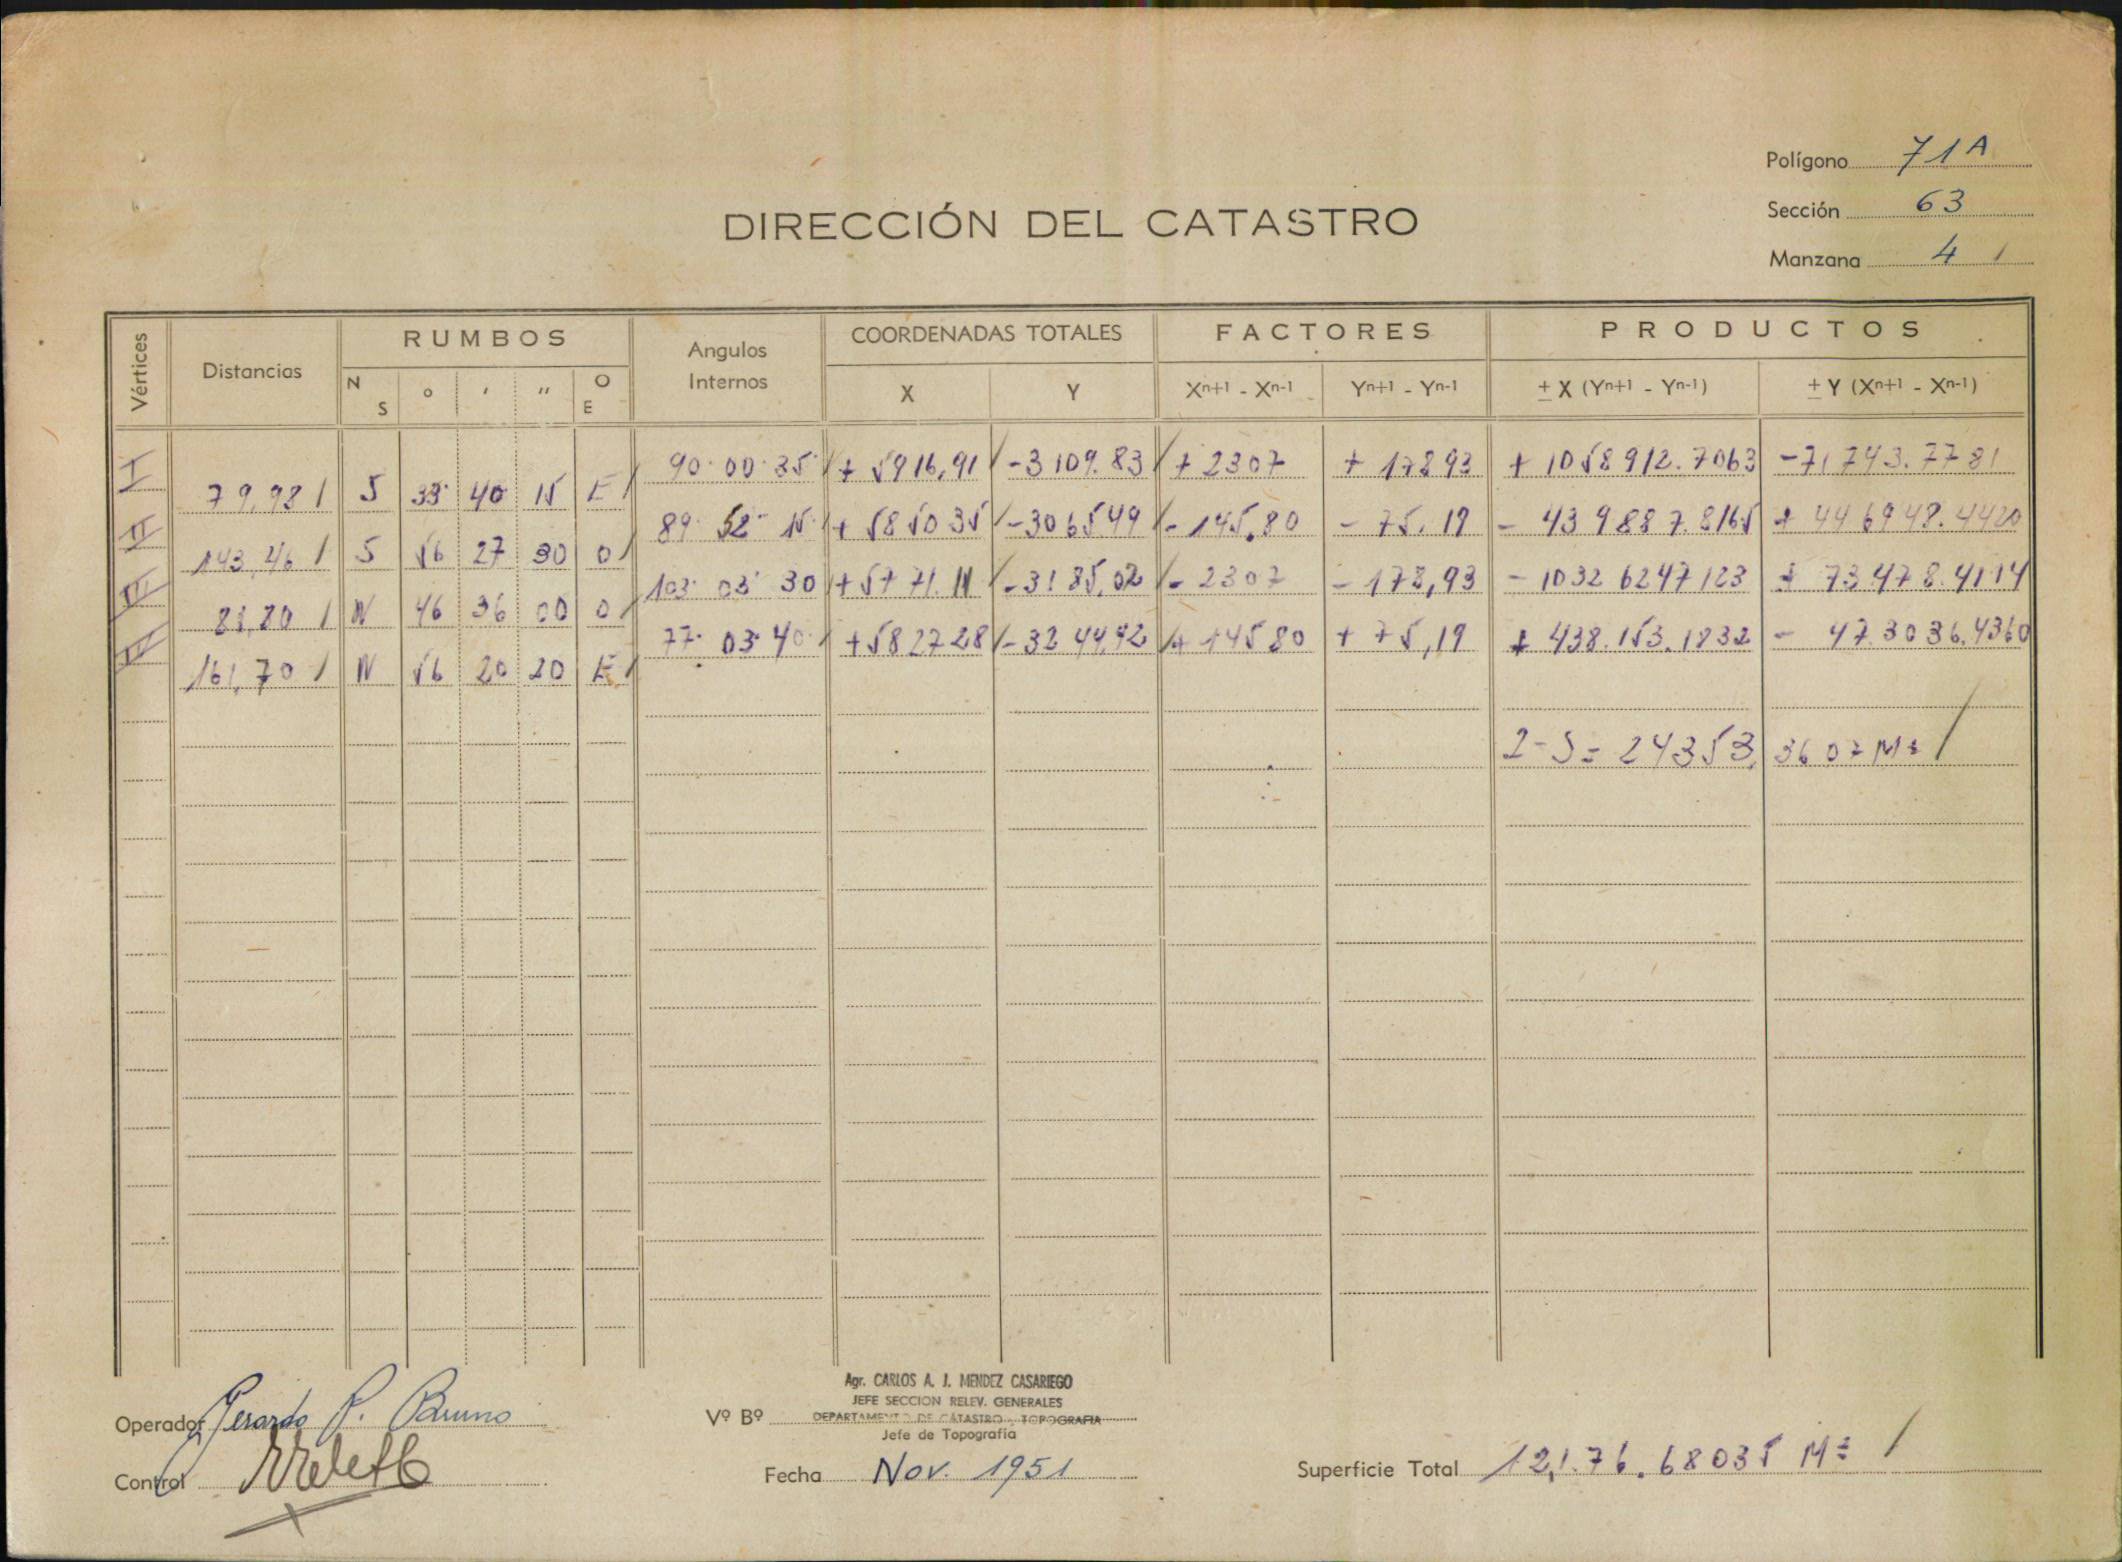 Polígono 71A
Sección 63
Manzana 4
DIRECCIÓN DEL CATASTRO
Vértices Distancias RUMBOS Angulos Internos COORDENADAS TOTALES FACTORES PRODUCTOS
N S ° ' " O E X Y Xn+1 - Xn-1 Yn+1 - Yn-1 ± X (Yn+1 - Yn-1) ± Y (Xn+1 - Xn-1)
I 90 00 35 + 5916,91 -3109.83 + 2307 + 17893 + 1058912.7063 -71743.7781
79,98 S 39 40 15 E
II 89 52 15 + 585035 -306549 - 145.80 - 75.19 - 439887.8165 + 446948.4420
143,46 S 56 27 30 O
III 103 03 30 +5771.11 -3185,02 - 2307 - 178,93 - 1032 6247123 + 73.478.4114
81,80 N 46 36 00 O
IV 77 03 40 +582728 -3244,92 + 14580 + 75,19 + 438.153.1832 - 47.3036.4360
161,70 N 56 20 20 E
2-S = 24353,3607 M2
Operador Gerardo P. Bruno
Control
Vº Bº Agr. CARLOS A. J. MENDEZ CASARIEGO
JEFE SECCION RELEV. GENERALES
DEPARTAMENTO DE CATASTRO Y TOPOGRAFIA
Jefe de Topografía
Fecha Nov. 1951
Superficie Total 12,1.76.68035 M2